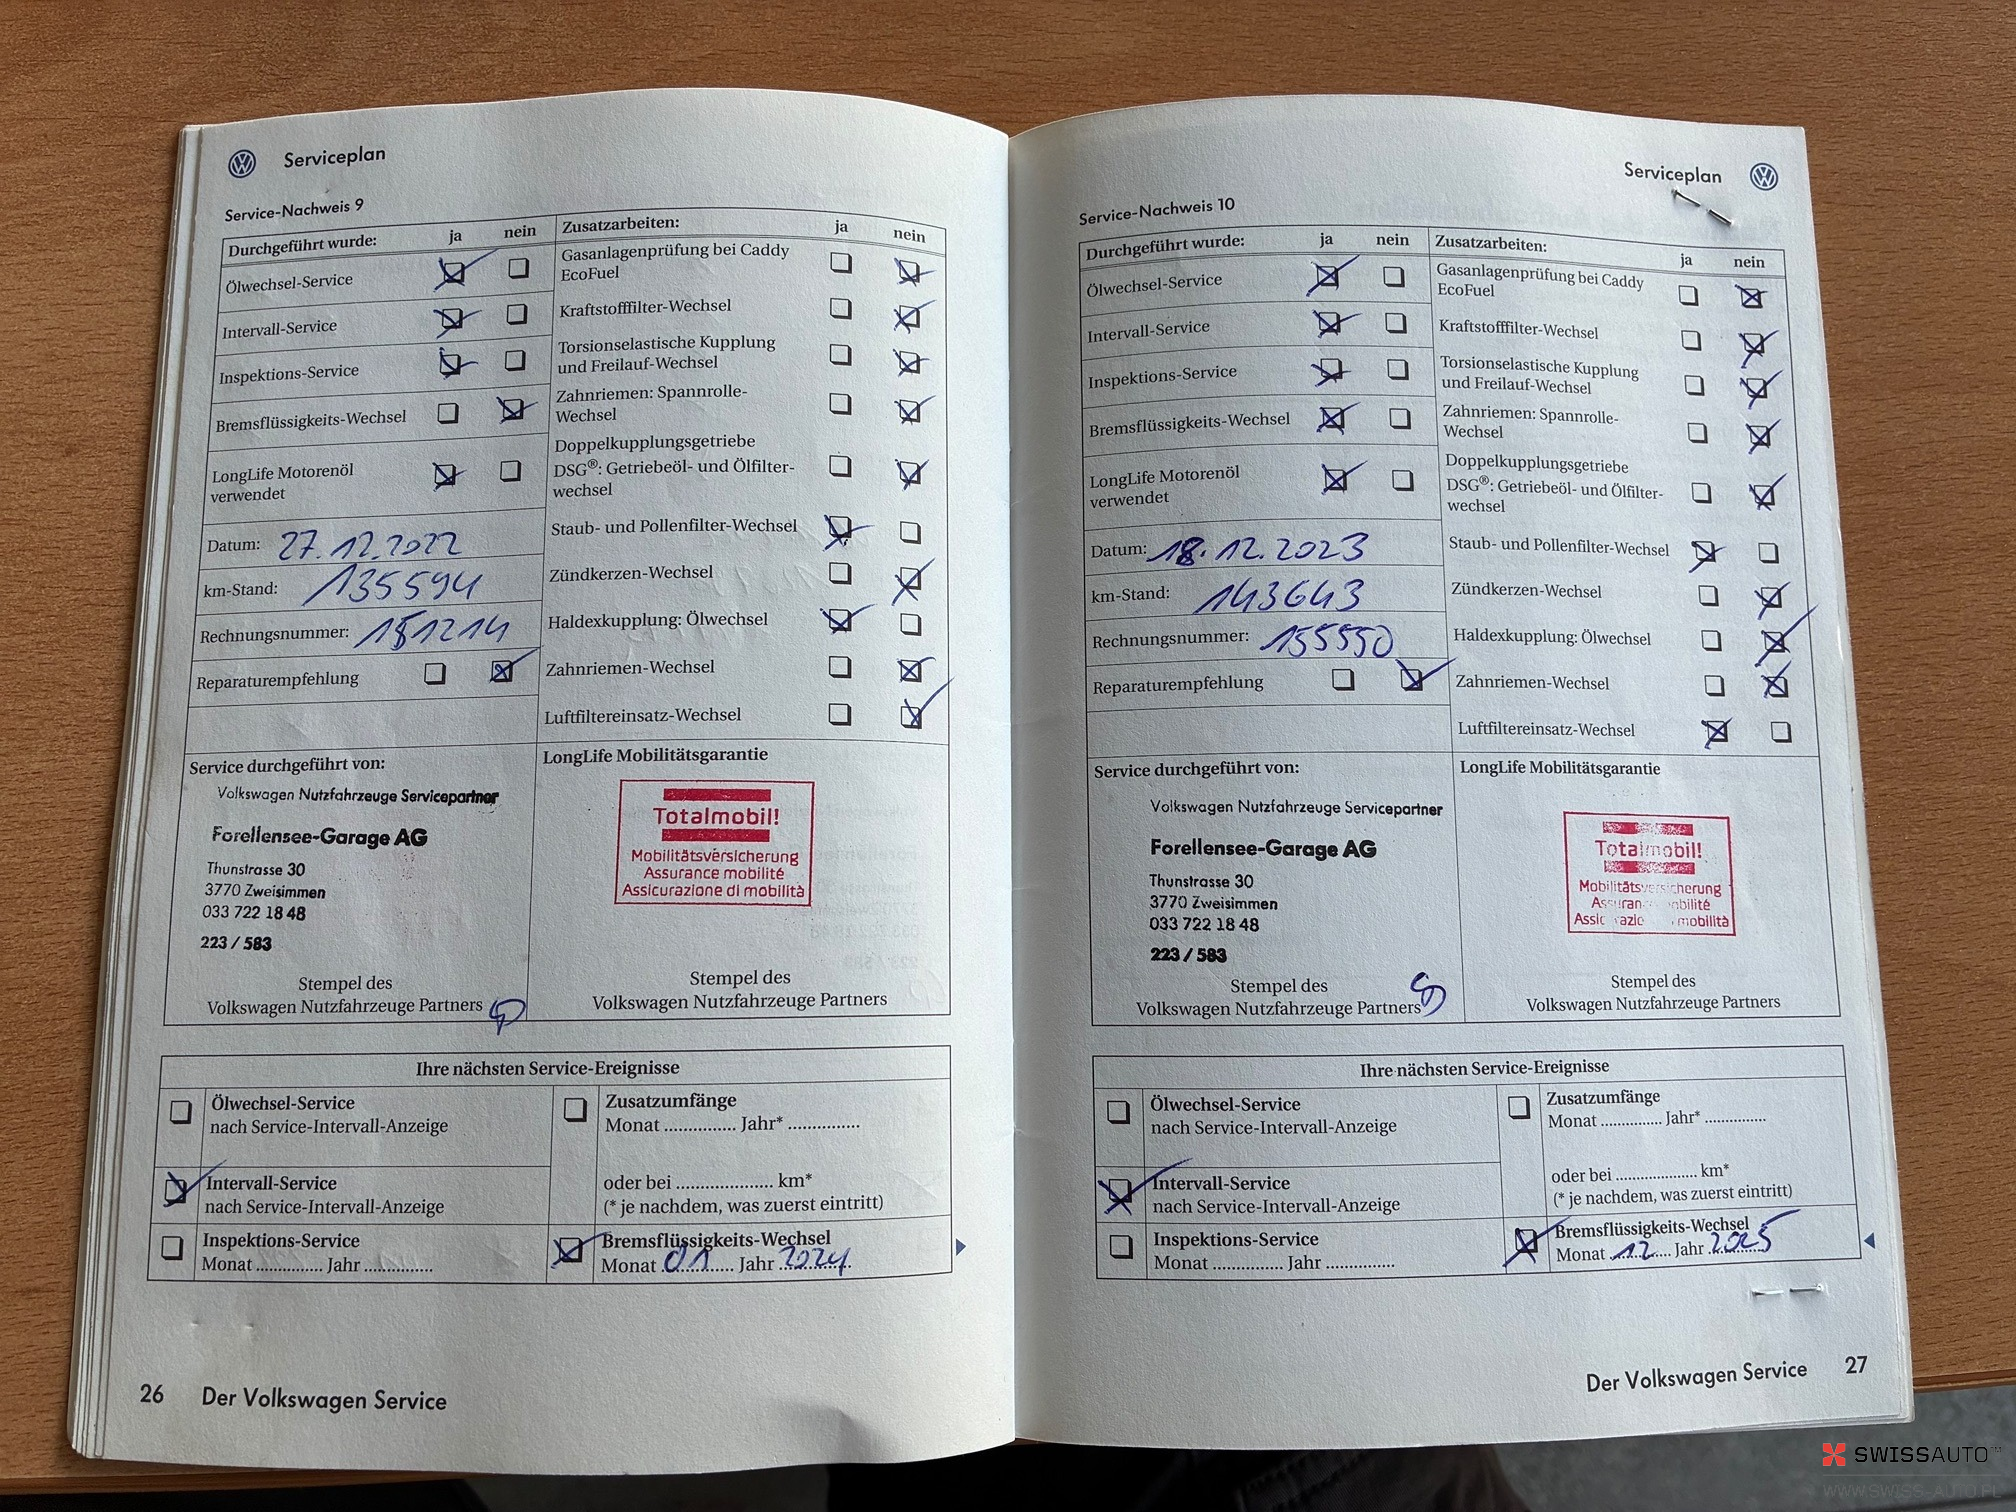 Serviceplan
Service-Nachweis 9
Durchgeführt wurde: ja nein
Ölwechsel-Service
Intervall-Service
Inspektions-Service
Bremsflüssigkeits-Wechsel
LongLife Motorenöl
verwendet
Datum: 27.12.2022
km-Stand: 135594
Rechnungsnummer: 151214
Reparaturempfehlung
Zusatzarbeiten: ja nein
Gasanlagenprüfung bei Caddy
EcoFuel
Kraftstofffilter-Wechsel
Torsionselastische Kupplung
und Freilauf-Wechsel
Zahnriemen: Spannrolle-
Wechsel
Doppelkupplungsgetriebe
DSG®: Getriebeöl- und Ölfilter-
wechsel
Staub- und Pollenfilter-Wechsel
Zündkerzen-Wechsel
Haldexkupplung: Ölwechsel
Zahnriemen-Wechsel
Luftfiltereinsatz-Wechsel
Service durchgeführt von:
Volkswagen Nutzfahrzeuge Servicepartner
Forellensee-Garage AG
Thunstrasse 30
3770 Zweisimmen
033 722 18 48
223 / 583
Stempel des
Volkswagen Nutzfahrzeuge Partners
LongLife Mobilitätsgarantie
Totalmobil!
Mobilitätsversicherung
Assurance mobilité
Assicurazione di mobilità
Stempel des
Volkswagen Nutzfahrzeuge Partners
Ihre nächsten Service-Ereignisse
Ölwechsel-Service
nach Service-Intervall-Anzeige
Intervall-Service
nach Service-Intervall-Anzeige
Inspektions-Service
Monat .............. Jahr ..............
Zusatzumfänge
Monat ............... Jahr* ...............
oder bei .................... km*
(* je nachdem, was zuerst eintritt)
Bremsflüssigkeits-Wechsel
Monat 01 Jahr 2024
26 Der Volkswagen Service
Serviceplan
Service-Nachweis 10
Durchgeführt wurde: ja nein
Ölwechsel-Service
Intervall-Service
Inspektions-Service
Bremsflüssigkeits-Wechsel
LongLife Motorenöl
verwendet
Datum: 18.12.2023
km-Stand: 143643
Rechnungsnummer: 155550
Reparaturempfehlung
Zusatzarbeiten: ja nein
Gasanlagenprüfung bei Caddy
EcoFuel
Kraftstofffilter-Wechsel
Torsionselastische Kupplung
und Freilauf-Wechsel
Zahnriemen: Spannrolle-
Wechsel
Doppelkupplungsgetriebe
DSG®: Getriebeöl- und Ölfilter-
wechsel
Staub- und Pollenfilter-Wechsel
Zündkerzen-Wechsel
Haldexkupplung: Ölwechsel
Zahnriemen-Wechsel
Luftfiltereinsatz-Wechsel
Service durchgeführt von:
Volkswagen Nutzfahrzeuge Servicepartner
Forellensee-Garage AG
Thunstrasse 30
3770 Zweisimmen
033 722 18 48
223 / 583
Stempel des
Volkswagen Nutzfahrzeuge Partners
LongLife Mobilitätsgarantie
Totalmobil!
Mobilitätsversicherung
mobilité
mobilità
Stempel des
Volkswagen Nutzfahrzeuge Partners
Ihre nächsten Service-Ereignisse
Ölwechsel-Service
nach Service-Intervall-Anzeige
Intervall-Service
nach Service-Intervall-Anzeige
Inspektions-Service
Monat ............... Jahr ...............
Zusatzumfänge
Monat ............... Jahr* ...............
oder bei .................... km*
(* je nachdem, was zuerst eintritt)
Bremsflüssigkeits-Wechsel
Monat 12 Jahr 2025
Der Volkswagen Service 27
SWISSAUTO
WWW.SWISS-AUTO.PL